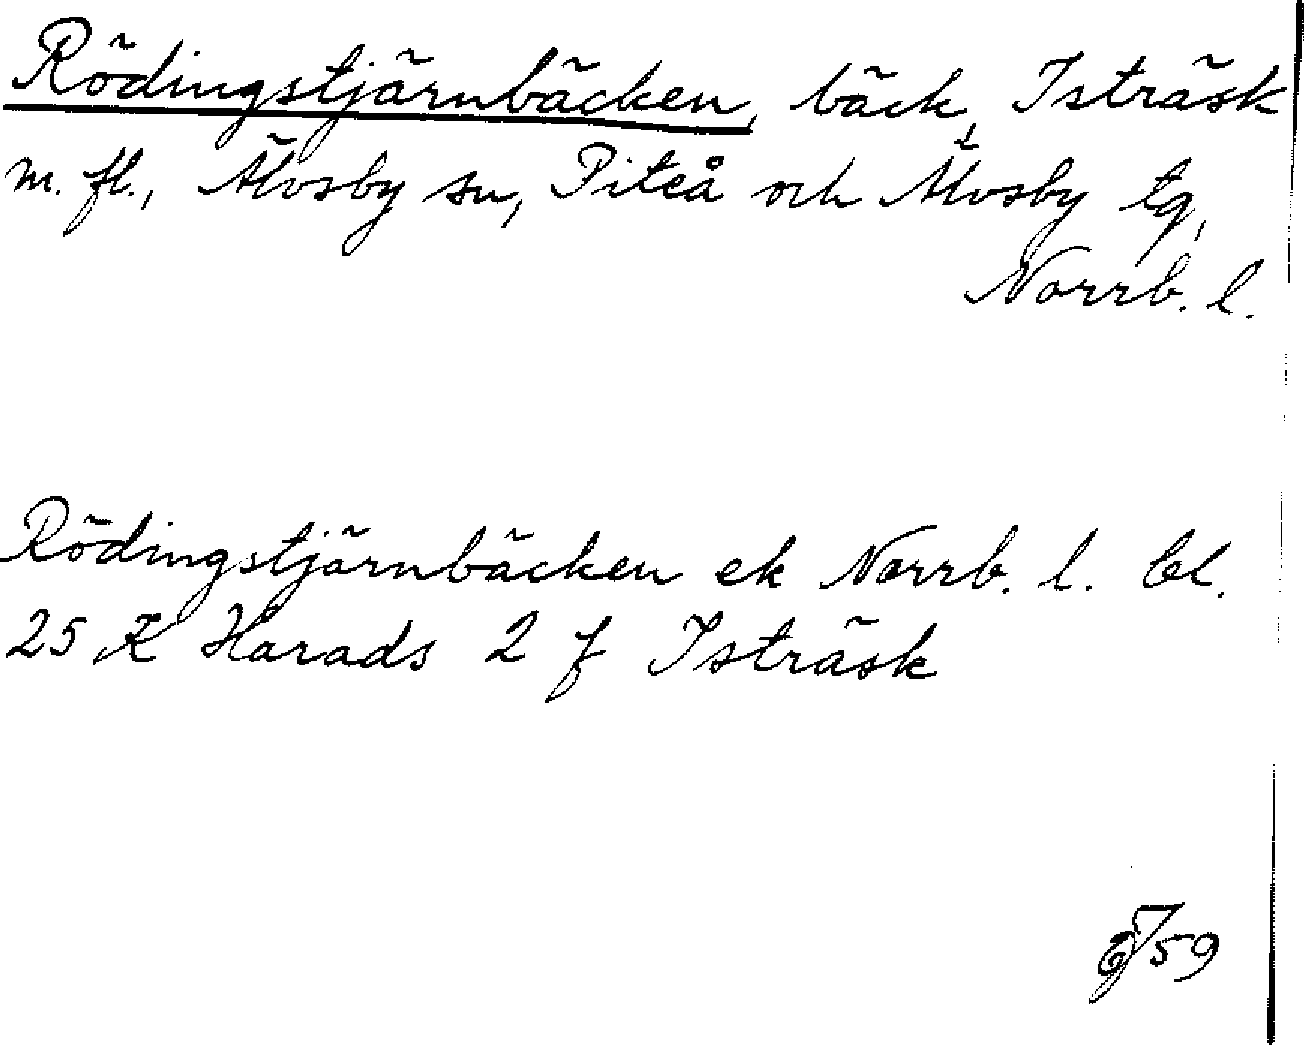 Rödingstjärnbäcken, bäck, Isträsk
m. fl., Älvsby sn, Piteå och Älvsby tg,
Norrb. l.
Rödingstjärnbäcken ek Norrb. l. bl.
25 K Harads 2 f Isträsk
59